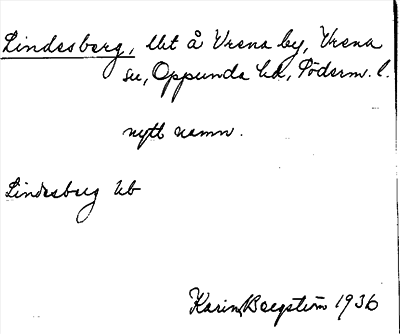 Lindesberg, Ukt å Vrena by, Vrena
sn, Oppunda hd, Söderm. l.
nytt namn.
Lindesberg Ub
Karin Bergström 1936